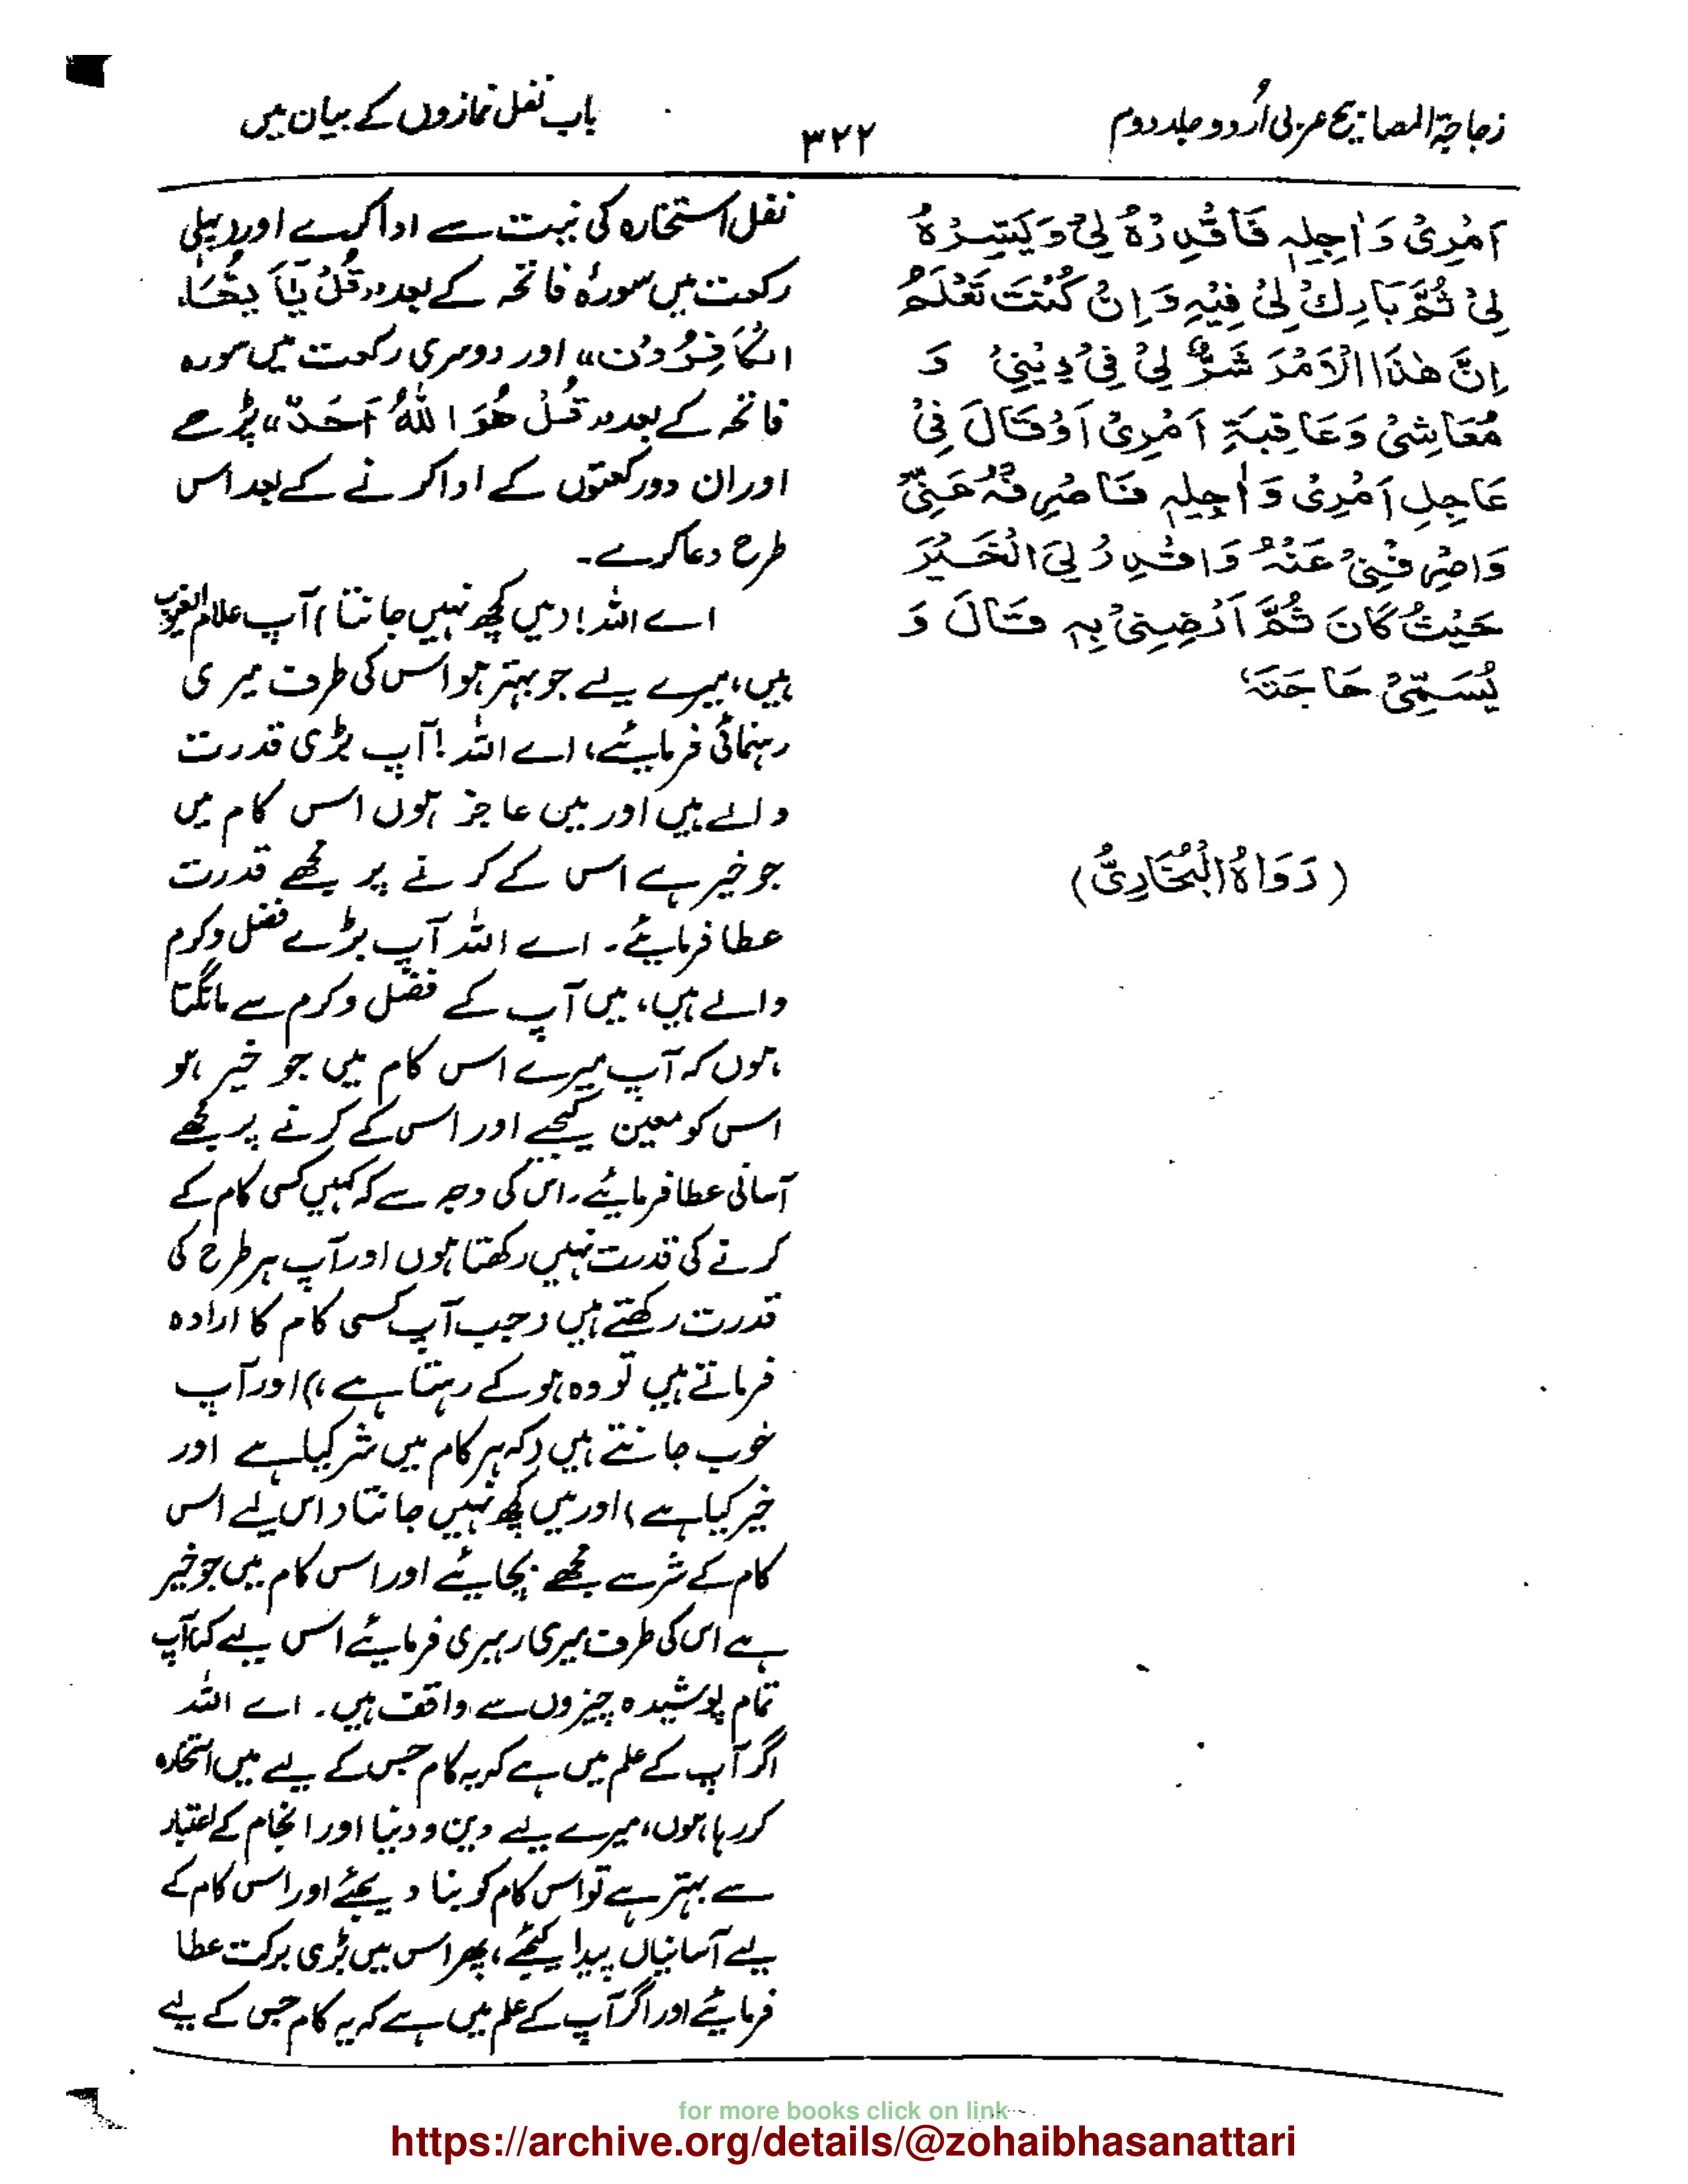 زجاجۃ المصابیح عربی اُردو جلد دوم
۳۲۲
باب نفل نمازوں کے بیان میں
اَمْرِیْ وَاٰجِلِہٖ فَاقْدِرْہُ لِیْ وَیَسِّرْہُ
لِیْ ثُمَّ بَارِكْ لِیْ فِیْہِ وَاِنْ كُنْتَ تَعْلَمُ
اِنَّ ھٰذَا الْاَمْرَ شَرٌّ لِیْ فِیْ دِیْنِیْ وَ
مَعَاشِیْ وَعَاقِبَۃِ اَمْرِیْ اَوْ قَالَ فِیْ
عَاجِلِ اَمْرِیْ وَاٰجِلِہٖ فَاصْرِفْہُ عَنِّیْ
وَاصْرِفْنِیْ عَنْہُ وَاقْدِرْ لِیَ الْخَیْرَ
حَیْثُ كَانَ ثُمَّ اَرْضِنِیْ بِہٖ قَالَ وَ
یُسَمِّیْ حَاجَتَہٗ
(رَوَاہُ الْبُخَارِیُّ)
نفل استخارہ کی نیت سے ادا کرے اور پہلی
رکعت میں سورۂ فاتحہ کے بعد «قُلْ یٰٓاَ یُّھَا
الْكَافِرُوْنَ» اور دوسری رکعت میں سورہ
فاتحہ کے بعد «قُلْ ھُوَ اللّٰہُ اَحَدٌ» پڑھے
اور ان دو رکعتوں کے ادا کرنے کے بعد اس
طرح دعا کرے۔
اے اللہ! (میں کچھ نہیں جانتا) آپ علام الغیوب
ہیں، میرے لیے جو بہتر ہو اس کی طرف میری
رہنمائی فرمایئے، اے اللہ! آپ بڑی قدرت
والے ہیں اور میں عاجز ہوں اس کام میں
جو خیر ہے اس کے کرنے پر مجھے قدرت
عطا فرمایئے۔ اے اللہ آپ بڑے فضل و کرم
والے ہیں، میں آپ کے فضل و کرم سے مانگتا
ہوں کہ آپ میرے اس کام میں جو خیر ہو
اس کو معین کیجیے اور اس کے کرنے پر مجھے
آسانی عطا فرمایئے۔ اس کی وجہ سے کہ میں کسی کام کے
کرنے کی قدرت نہیں رکھتا ہوں اور آپ ہر طرح کی
قدرت رکھتے ہیں (جب آپ کسی کام کا ارادہ
فرماتے ہیں تو وہ ہو کے رہتا ہے،) اور آپ
خوب جانتے ہیں (کہ ہر کام میں شر کیا ہے اور
خیر کیا ہے) اور میں کچھ نہیں جانتا (اس لیے اس
کام کے شر سے مجھے بچایئے اور اس کام میں جو خیر
ہے اس کی طرف میری رہبری فرمایئے اس لیے کہ آپ
تمام پوشیدہ چیزوں سے واقف ہیں۔ اے اللہ
اگر آپ کے علم میں ہے کہ یہ کام جس کے لیے میں استخارہ
کر رہا ہوں، میرے لیے دین و دنیا اور انجام کے اعتبار
سے بہتر ہے تو اس کام کو بنا دیجئے اور اس کام کے
لیے آسانیاں پیدا کیجئے، پھر اس میں بڑی برکت عطا
فرمایئے اور اگر آپ کے علم میں ہے کہ یہ کام جس کے لیے
for more books click on link
https://archive.org/details/@zohaibhasanattari